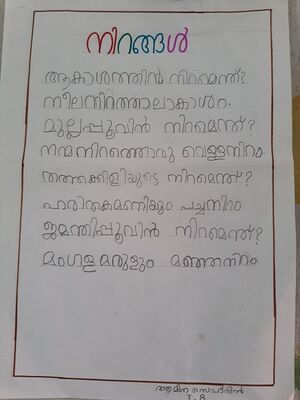 നിറങ്ങൾ
ആകാശത്തിൻ നിറമെന്ത്?
നീലനിറത്താലാകാശം.
മുല്ലപ്പൂവിൻ നിറമെന്ത്?
നന്മനിറത്തൊരു വെള്ളനിറം
തത്തക്കിളിയുടെ നിറമെന്ത്?
ഹരിതകമണിയും പച്ചനിറം
ജമന്തിപ്പൂവിൻ നിറമെന്ത്?
മംഗളമരുളും മഞ്ഞനിറം
ആമിന
I. B